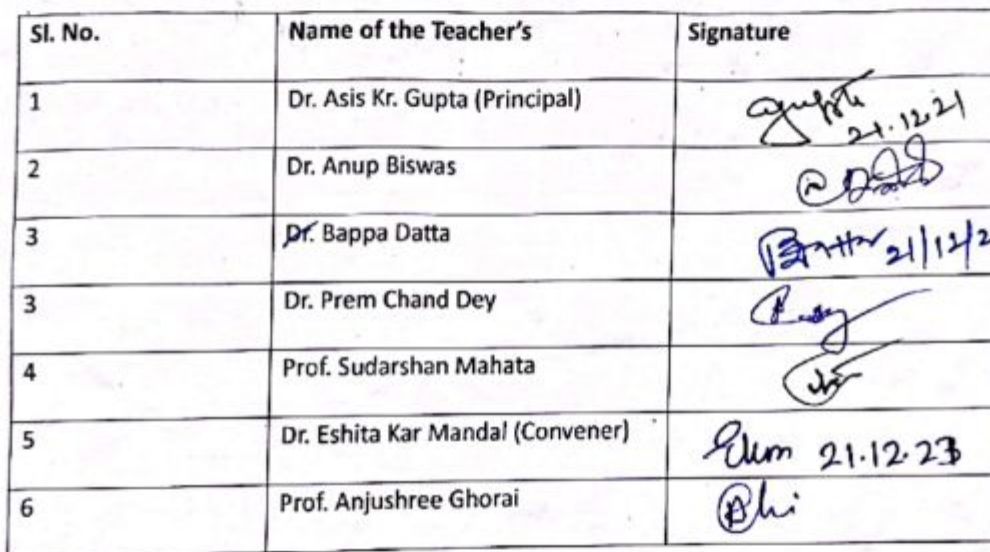 Sl. No. Name of the Teacher's Signature
1 Dr. Asis Kr. Gupta (Principal) 21.12.21
2 Dr. Anup Biswas
3 Dr. Bappa Datta 21/12/2
3 Dr. Prem Chand Dey
4 Prof. Sudarshan Mahata
5 Dr. Eshita Kar Mandal (Convener) 21.12.23
6 Prof. Anjushree Ghorai